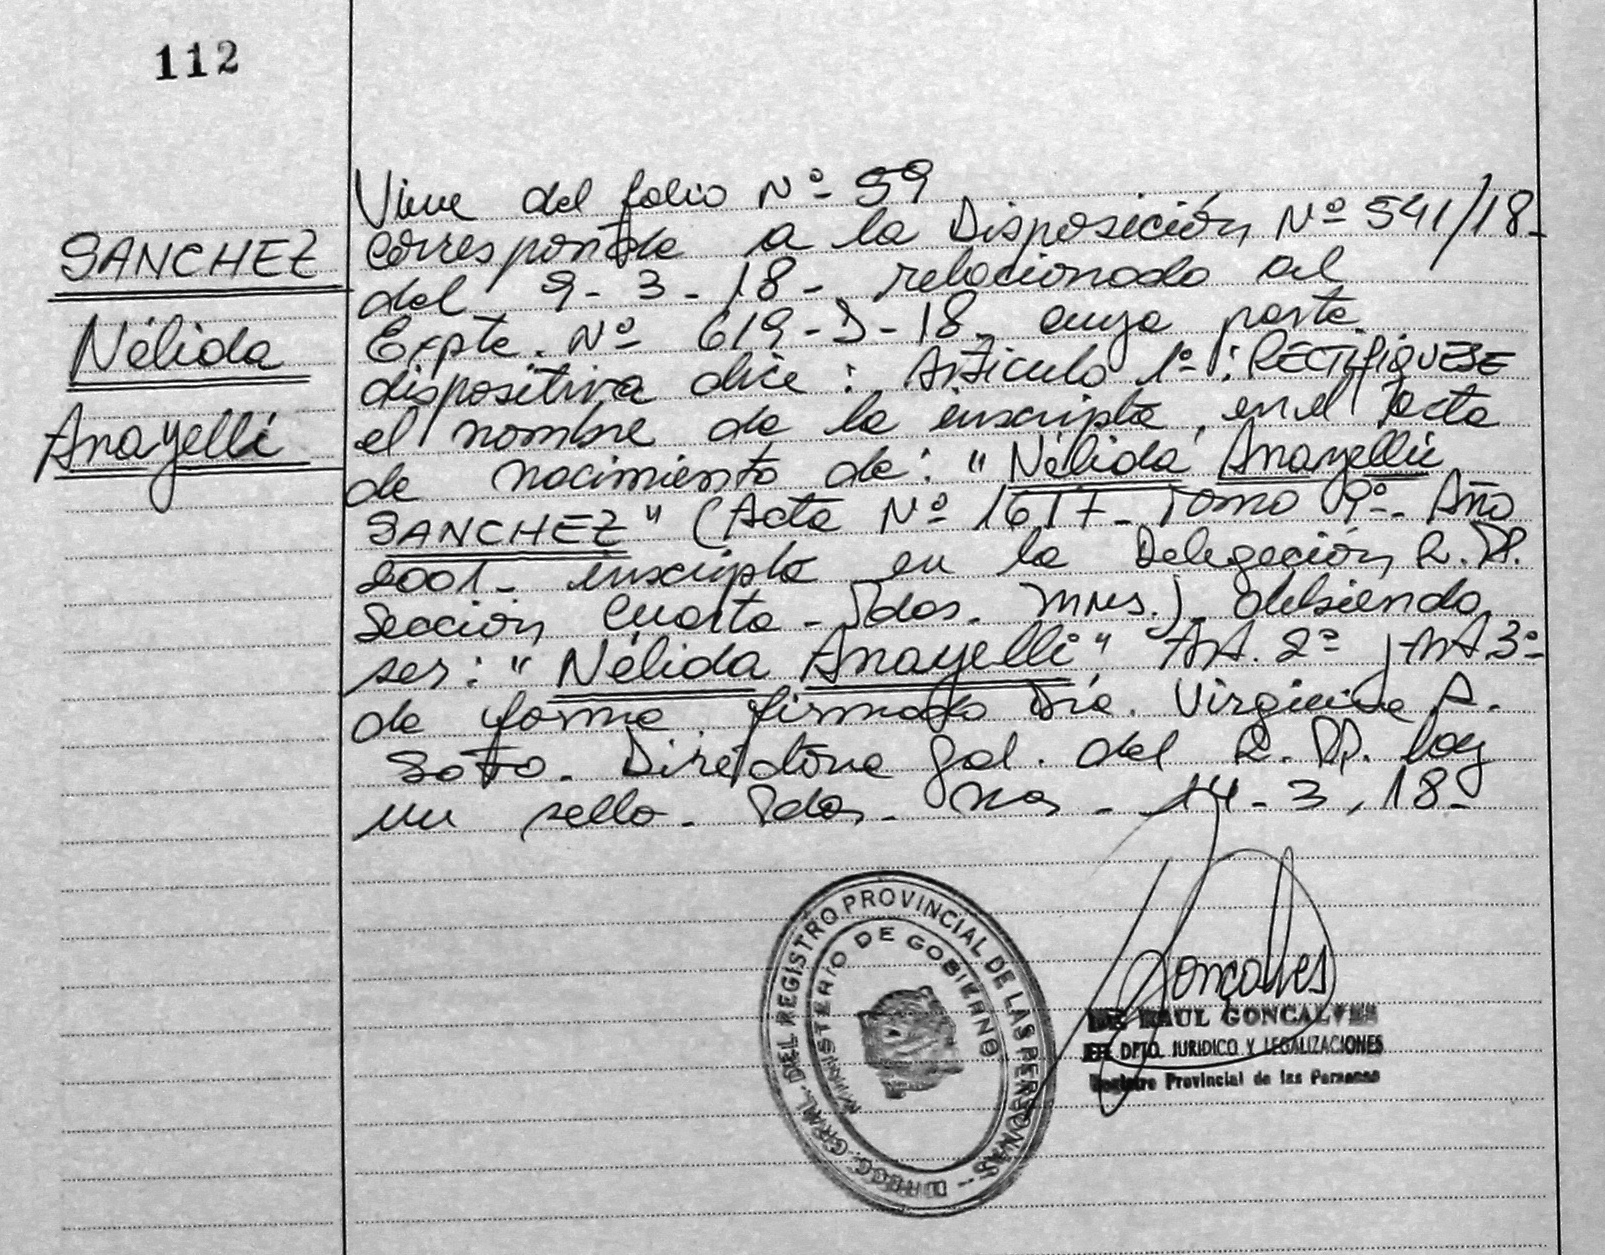 112
SANCHEZ
Nélida
Anayelli
Viene del folio Nº 59
corresponde a la Disposición Nº 541/18-
del 9-3-18- relacionado al
Expte. Nº 619-D-18, cuya parte
dispositiva dice: Articulo 1º: RECTIFIQUESE
el nombre de la inscripta, en el acta
de nacimiento de: "Nélida Anayelli
SANCHEZ" (Acta Nº 1617- Tomo 9º- Año
2001- inscripta en la Delegación R.P.
Sección Cuarta- Pdas. Mnes.)- debiendo
ser: "Nélida Anayelli" Art. 2º y Art 3º-
de forma firmado Dra. Virginia A.
Soto. Directora Gal. del R.P. hay
un sello. Pdas. Mns- 14-3-18-
DIRECC. GRAL. DEL REGISTRO PROVINCIAL DE LAS PERSONAS
MINISTERIO DE GOBIERNO
Goncalves
RAUL GONCALVES
DPTO. JURIDICO Y LEGALIZACIONES
Registro Provincial de las Personas